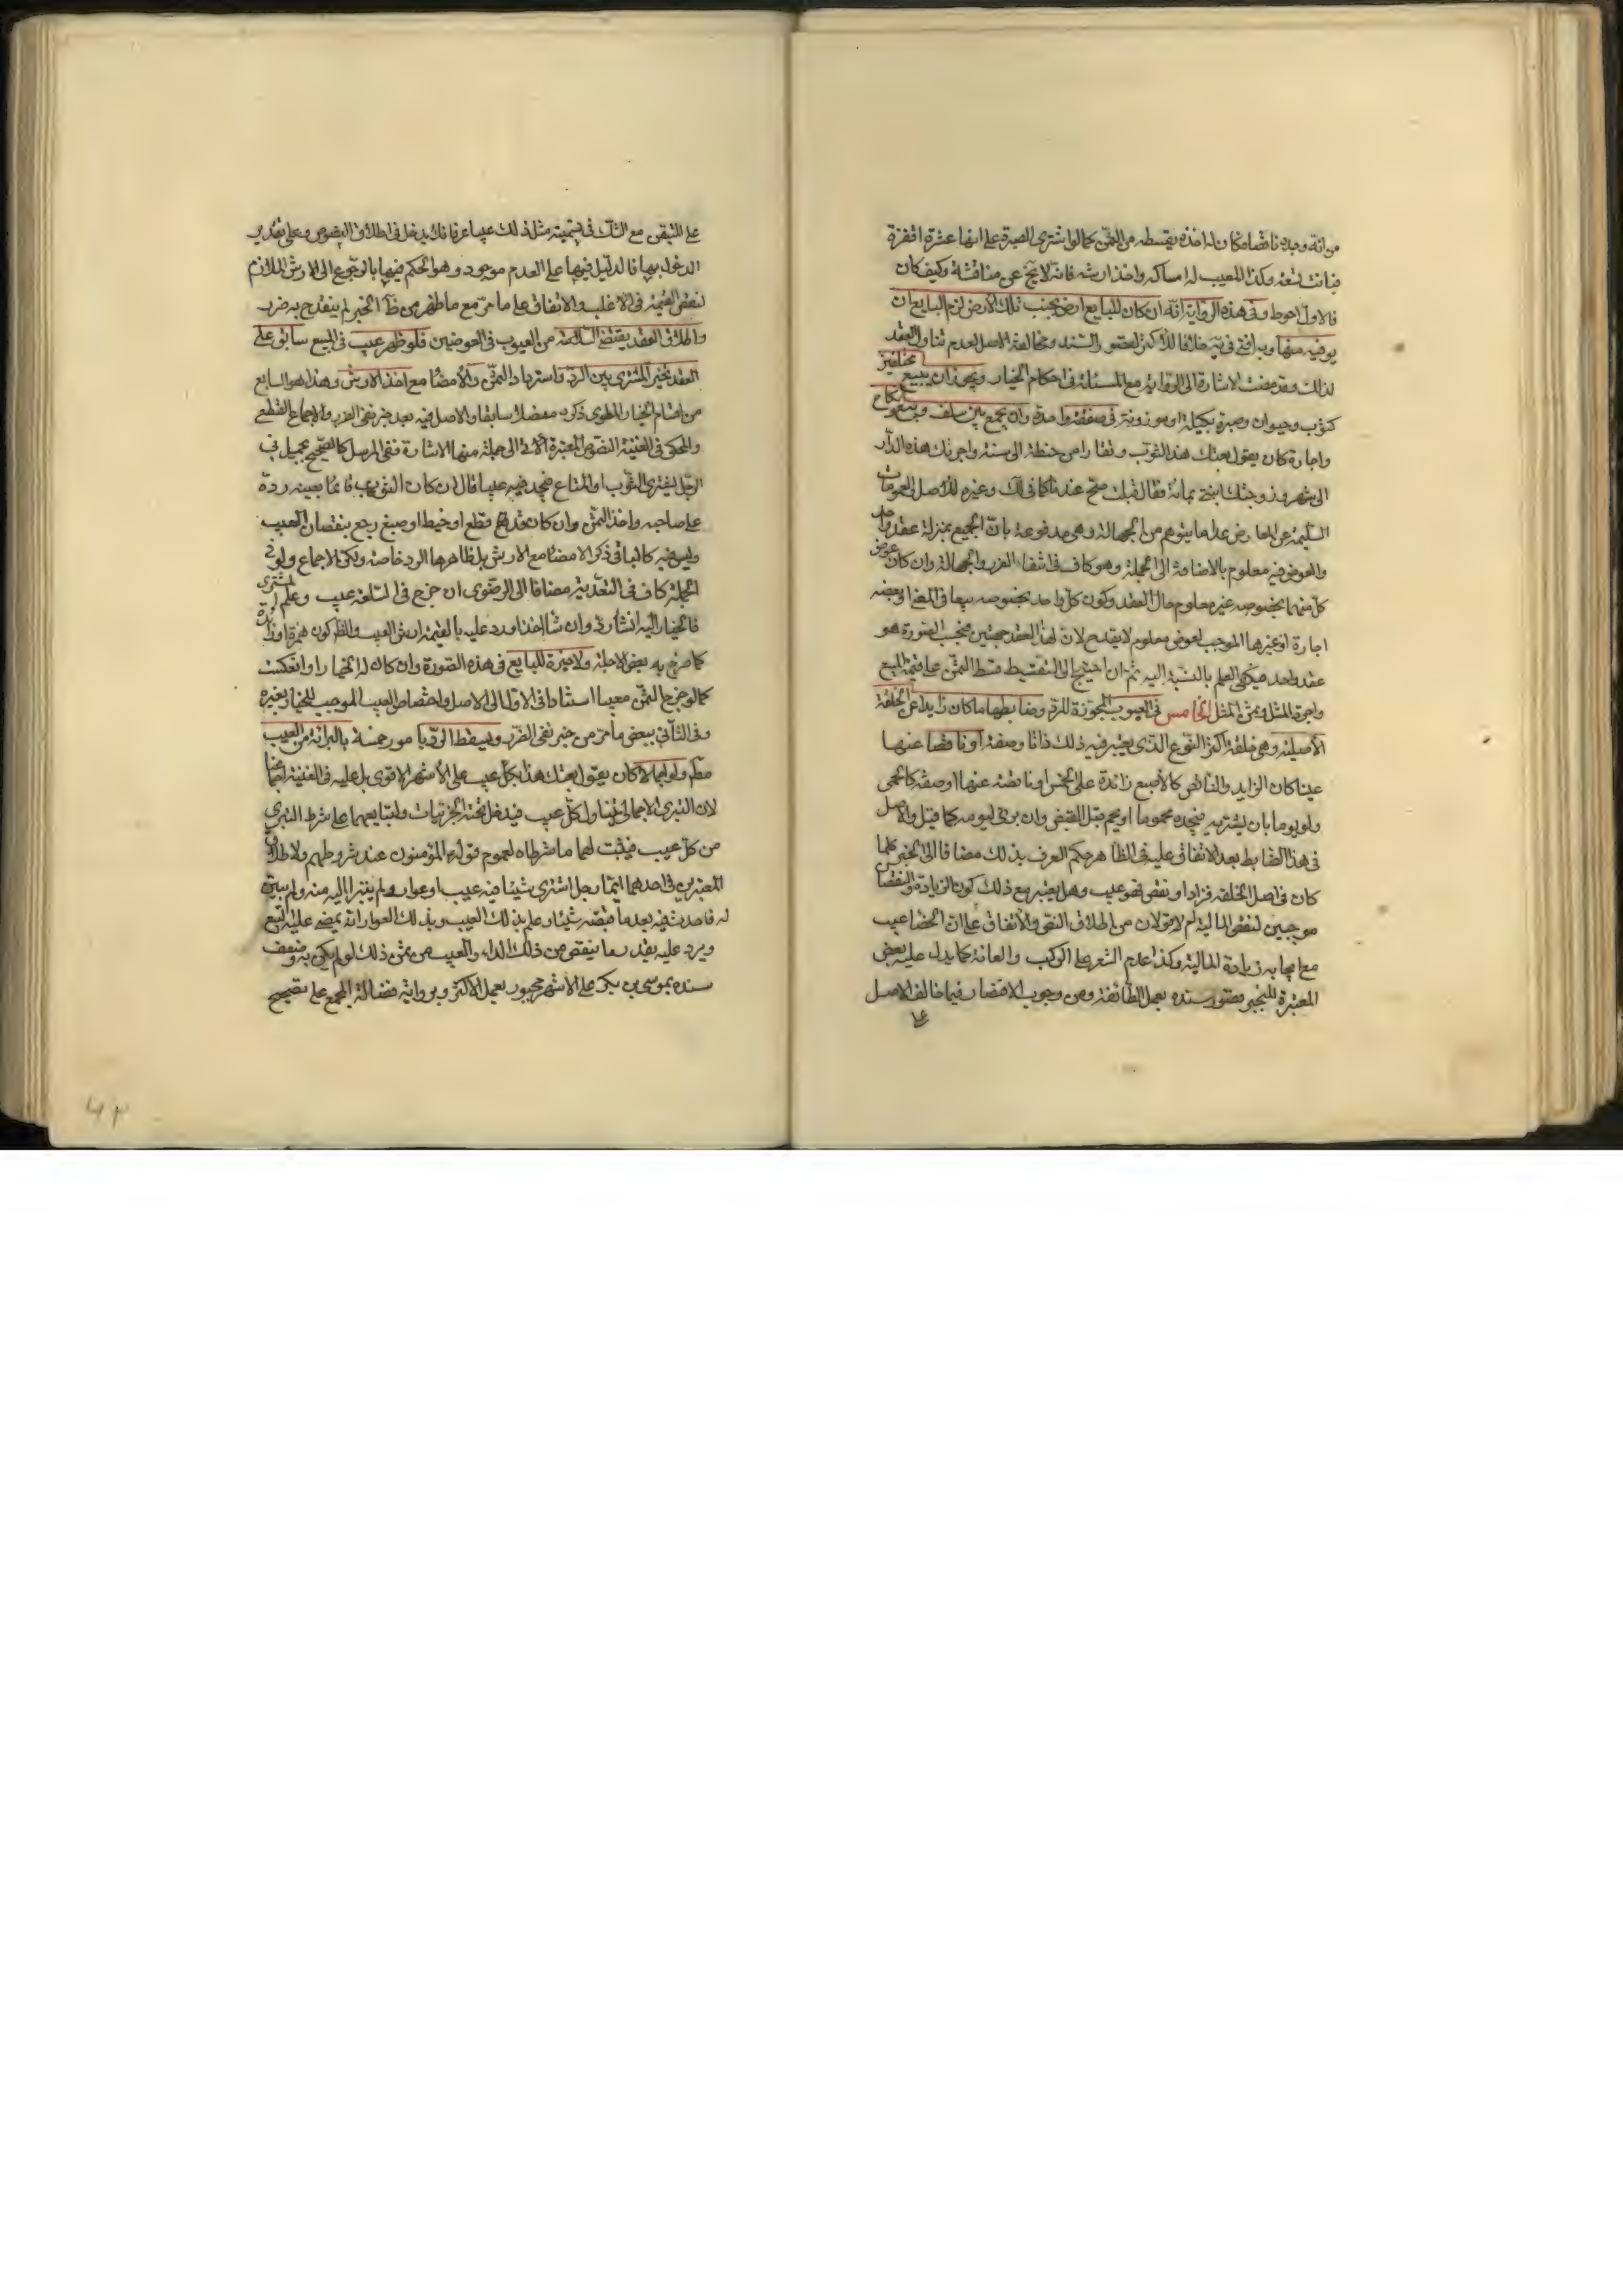 من انه وجده ناقصا فكان له اخذه بقسطه من الثمن كما لو اشترى الصبرة على انها عشرة اقفزة
فبانت تسعة وكذا المعيب له امساكه واخذ ارشه فانه لا يخ عن مناقشة وكيف كان
فالاول احوط وفي هذه الرواية انه ان كان للبايع ارض بجنب تلك الارض لزم البايع ان
يوفيه منها وبه افتى في ية خلافا للاكثر لقصور السند ومخالفة الاصل لعدم تناول العقد
لذلك وقد مضت الاشارة الى الرواية مع المسئلة في احكام الخيار ويجوز ان يبيع مختلفين
كثوب وحيوان وصبرة مكيلة او موزونة في صفقة واحدة وان يجمع بين سلف وبيع ونكاح
واجارة كان يقول بعتك هذا الثوب وقفازا من حنطة الى سنة واجرتك هذه الدار
الى شهر وزوجتك ابنتي بمائة فقال قبلت صح عندنا كما في لك وغيره للاصل والعمومات
السليمة عن المعارض عدا ما يتوهم من الجهالة وهي مدفوعة بان الجميع بمنزلة عقد واحد
والعوض فيه معلوم بالاضافة الى الجملة وهو كاف في انتفاء الغرر والجهالة وان كان عوض
كل منهما بخصوصه غير معلوم حال العقد وكون كل واحد بخصوصه بيعا في المعنى او بعضه
اجارة او غيرها الموجب لعوض معلوم لا يقدح لان لهذا العقد جهتين فبحسب الصورة هو
عقد واحد فيكفي العلم بالنسبة اليه ثم ان احتيج الى التقسيط قسط الثمن على قيمة المبيع
واجرة المثل ومهر المثل الخامس في العيوب المجوزة للرد وضابطها ما كان زايدا عن الخلقة
الاصلية وهي خلقة اكثر النوع الذي يعتبر فيه ذلك ذاتا وصفة او ناقصا عنها
عينا كان الزايد والناقص كالاصبع زائدة على الخمس او ناقصة عنها او صفة كالحمى
ولو يوما بان يشتريه فيجده محموما او يحم قبل القبض وان برئ ليومه كما قيل والاصل
في هذا الضابط بعد الاتفاق عليه في الظاهر حكم العرف بذلك مضافا الى الخبر كلما
كان في اصل الخلقة فزاد او نقص فهو عيب وهل يعتبر مع ذلك كون الزيادة والنقصان
موجبين لنقص المالية ام لا قولان من اطلاق النص والاتفاق على ان الخصا عيب
مع ايجابه زيادة المالية وكذا عدم الشعر على الركب والعانة كما يدل عليه بعض
المعتبرة المنجبر بقصور سنده بعمل الطائفة ومن وجوب الاقتصار فيما خالف الاصل
على
على المتيقن مع الشك في تسمية مثل ذلك عيبا عرفا فلا يدخل في اطلاق النصوص وعلى تقدير
الدخول بها فالدليل فيها على العدم موجود وهو الحكم فيها بالرجوع الى الارش اللازم
لنقص القيمة في الاغلب والاتفاق على ما مر مع ما ظهر من ظ الخبر لم ينقدح به ضرب
واطلاق العقد يقتضي السلامة من العيوب في العوضين فلو ظهر عيب في المبيع سابق على
العقد تخير المشتري بين الرد واسترداد الثمن والامضاء مع اخذ الارش وهذا هو السابع
من اقسام الخيار المطوي ذكره مفصلا سابقا والاصل فيه بعد خبر نفي الضرر والاجماع القطعي
والمحكى في الغنية النصوص المعتبرة الاتى الى جملة منها الاشارة ففي المرسل كالصحيح بجميل في
الرجل يشتري الثوب او المتاع فيجد فيه عيبا قال ان كان الثوب قائما بعينه رده
على صاحبه واخذ الثمن وان كان قد قطع او خيط او صبغ رجع بنقصان العيب
وليس فيه كالباقي ذكر الامضاء مع الارش بل ظاهرها الرد خاصة ولكن الاجماع ولو في
الجملة كاف في التعدية مضافا الى الرضوي ان خرج في السلعة عيب وعلم المشترى
فالخيار اليه ان شاء رد وان شاء اخذ او رد عليه بالقيمة ارش العيب والظ كون همزة او زائدة
كما صرح به بعض الاجلة ولا خيرة للبايع في هذه الصورة وان كان له الخيار لو انعكست
كما لو خرج الثمن معيبا استنادا في الاول الى الاصل واختصاص العيب الموجب للخيار بغيره
وفي الثاني ببعض ما مر من خبر نفي الضرر ويسقط الرد بامور خمسة بالبرائة من العيب
مطم ولو اجمالا كان يقول بعتك هذا بكل عيب على الاشهر الاقوى بل عليه في الغنية اجماعنا
لان التبرى الاجمالي يتناول كل عيب فيدخل تحته الجزئيات ولتبايعهما على شرط التبرى
من كل عيب فيثبت لهما ما شرطاه لعموم قوله المؤمنون عند شروطهم ولاطلاق
المعتبرين في احدهما ايما رجل اشترى شيئا فيه عيب او عوار ولم يتبرا اليه منه ولم يبين
له فاحدث فيه بعد ما قبضه شيئا وعلم بذلك العيب وبذلك العوار انه يمضى عليه البيع
ويرد عليه بقدر ما ينقص من ذلك الداء والعيب من ثمن ذلك لو لم يكن به وضعف
سنده بموسى بن بكر على الاشهر مجبور بعمل الاكثر وبرواية فضالة المجمع على تصحيح